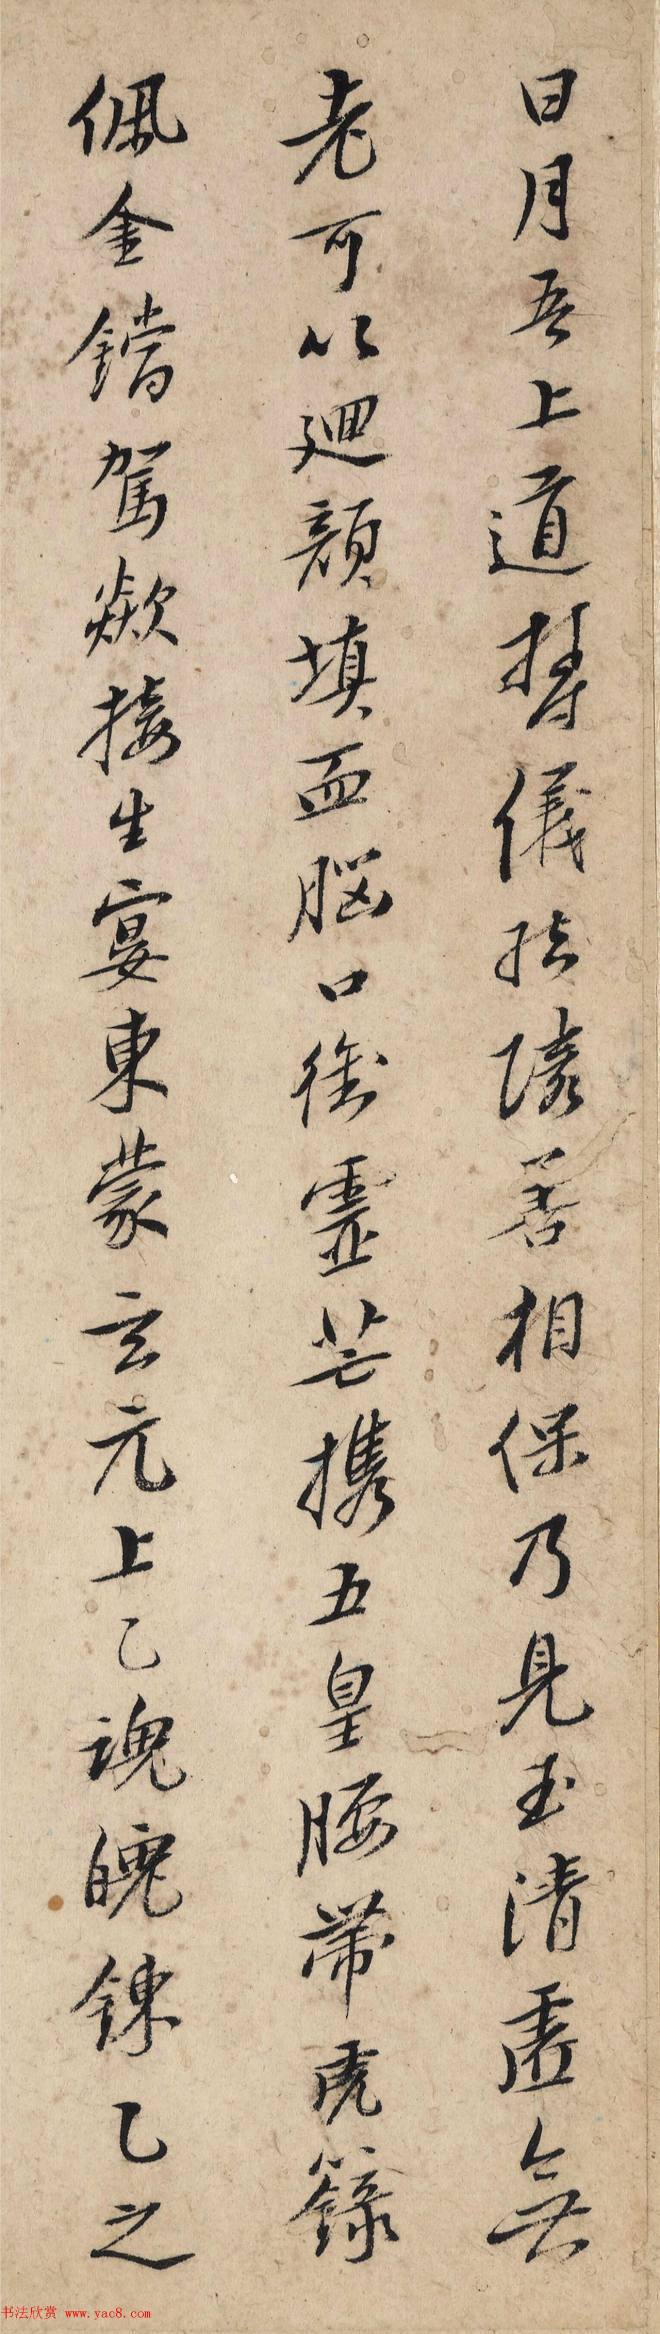 日月吾上道欝儀結璘善相保乃見玉清虛無
老可以迴顔填血腦口銜霊芒携五皇腰帶虎籙
佩金鐺駕歘接生宴東蒙玄元上乙魂魄錬乙之
书法欣赏 www.yac8.com